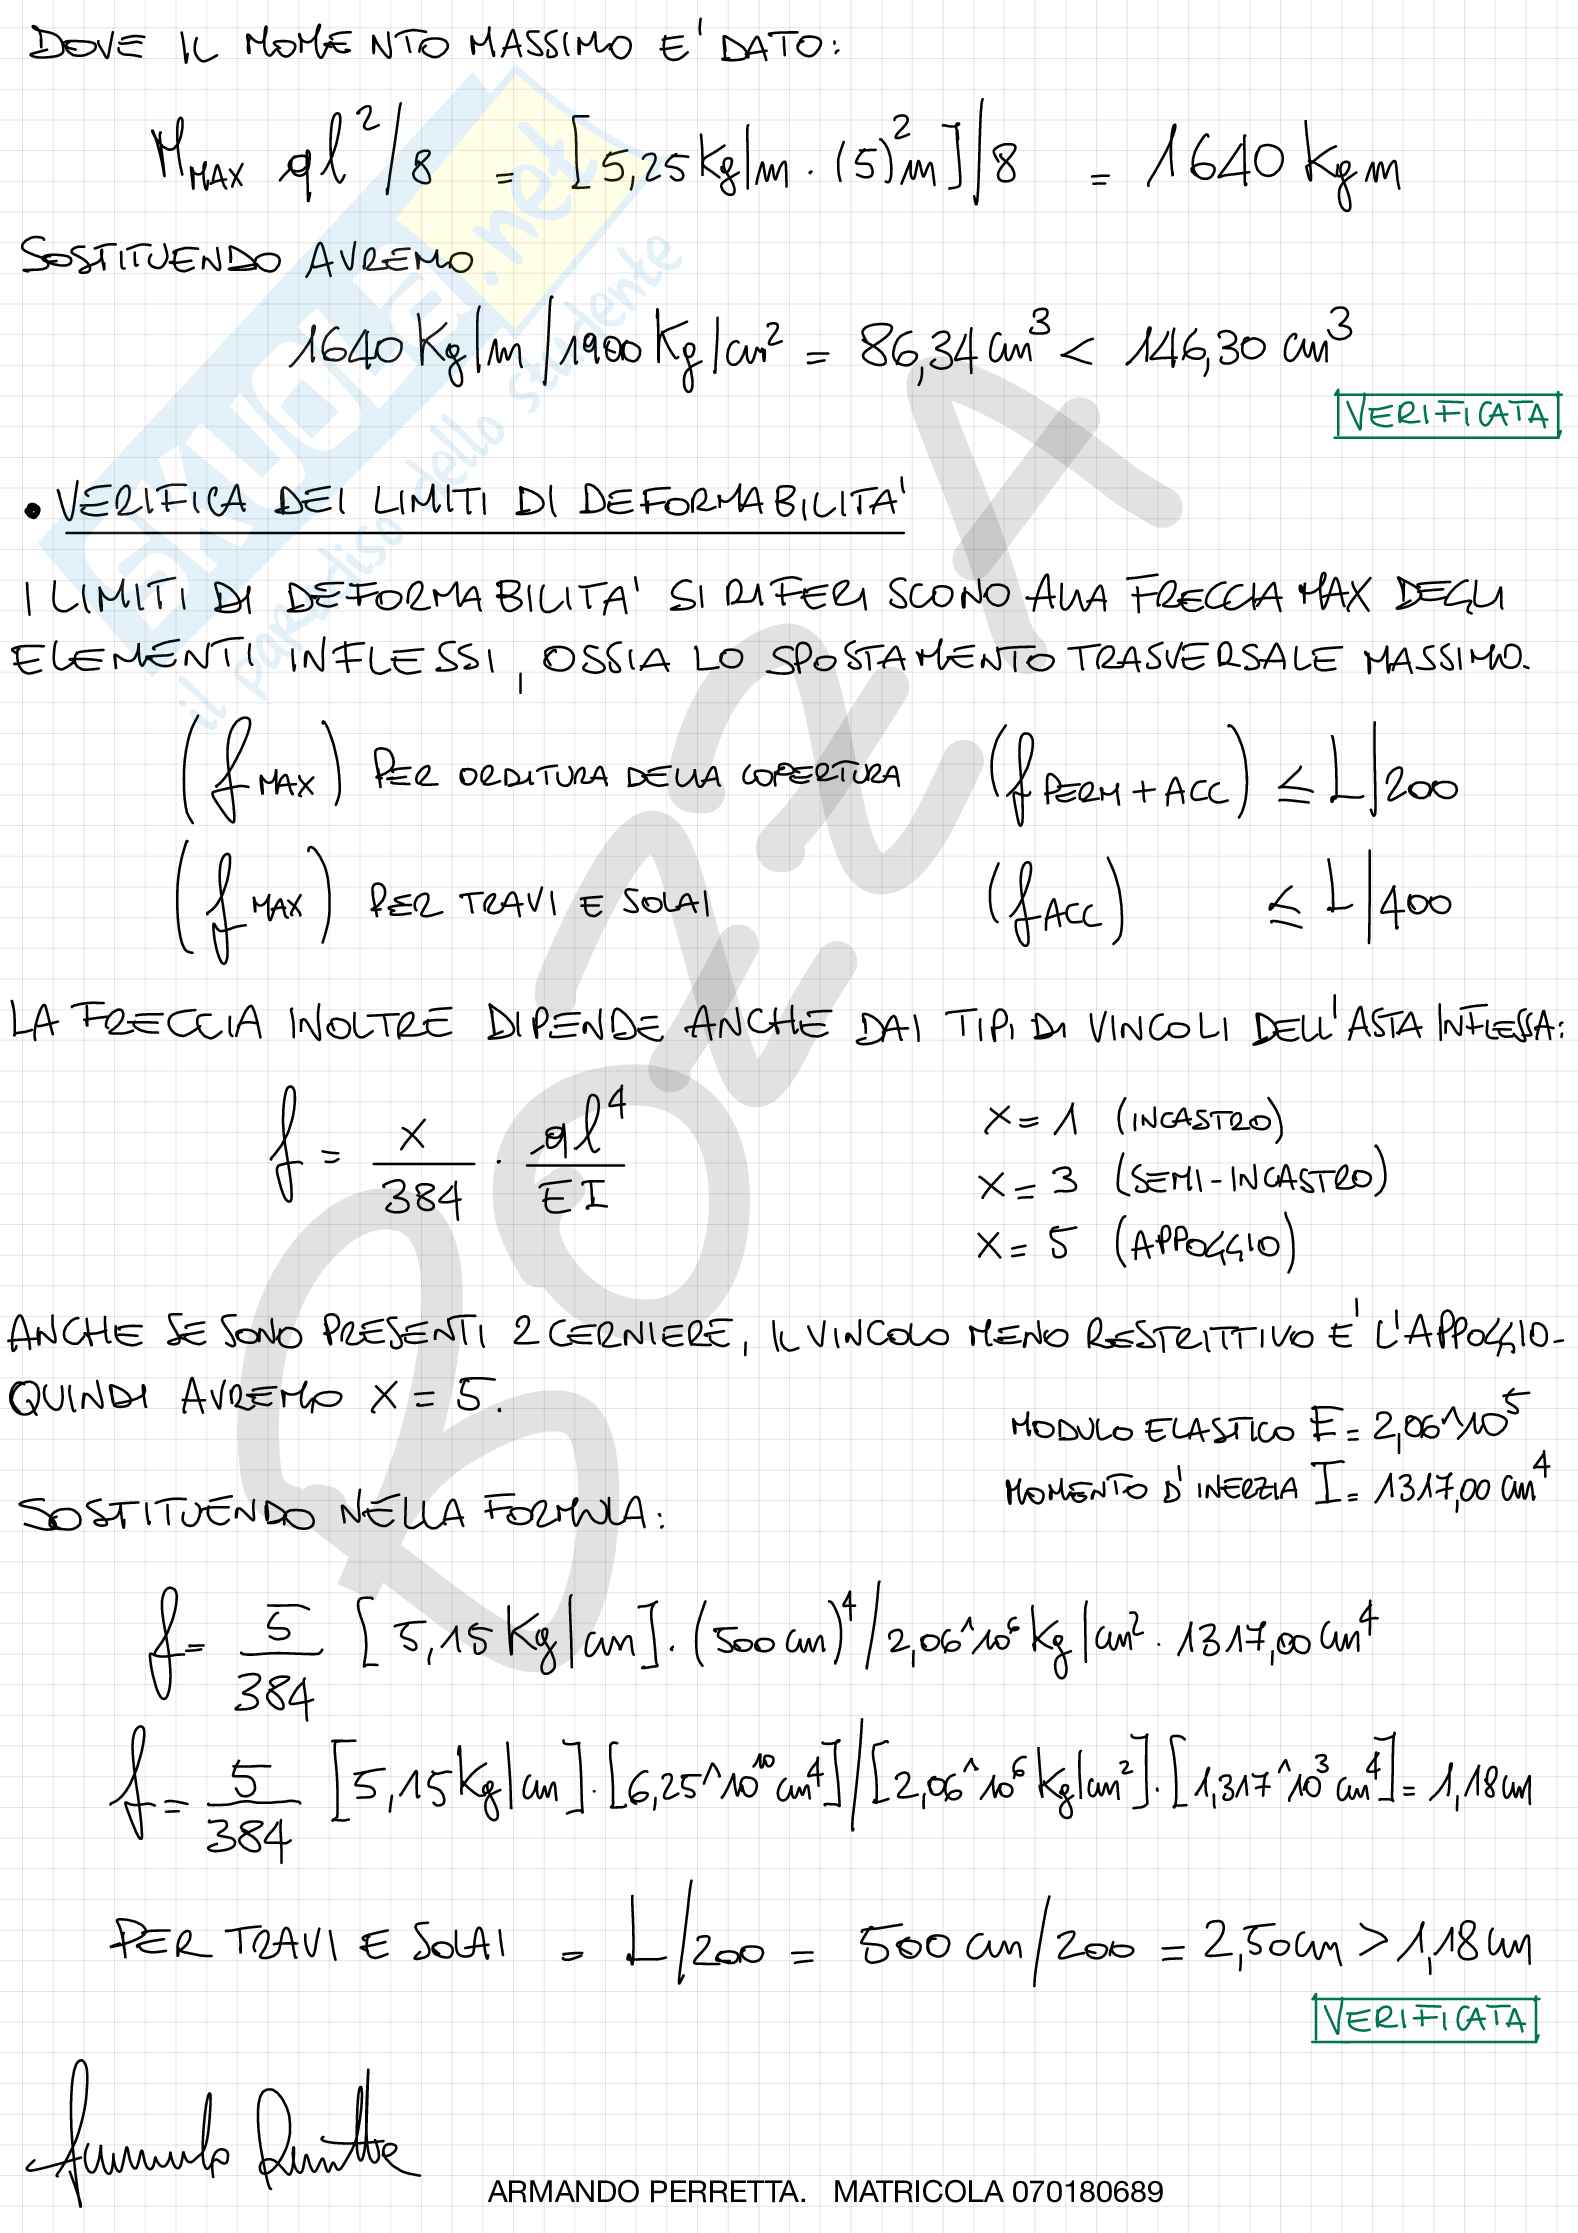 DOVE IL MOMENTO MASSIMO E' DATO:
M MAX ql²/8 = [5,25 Kg/m · (5)²m]/8 = 1640 Kgm
SOSTITUENDO AVREMO
1640 Kg/m /1900 Kg/cm² = 86,34 cm³ < 146,30 cm³
VERIFICATA
• VERIFICA DEI LIMITI DI DEFORMABILITA'
I LIMITI DI DEFORMABILITA' SI RIFERISCONO ALLA FRECCIA MAX DEGLI
ELEMENTI INFLESSI, OSSIA LO SPOSTAMENTO TRASVERSALE MASSIMO.
(f MAX) PER ORDITURA DELLA COPERTURA (f PERM + ACC) ≤ L/200
(f MAX) PER TRAVI E SOLAI (f ACC) ≤ L/400
LA FRECCIA INOLTRE DIPENDE ANCHE DAI TIPI DI VINCOLI DELL'ASTA INFLESSA:
f = x/384 · ql⁴/EI
x = 1 (INCASTRO)
x = 3 (SEMI-INCASTRO)
x = 5 (APPOGGIO)
ANCHE SE SONO PRESENTI 2 CERNIERE, IL VINCOLO MENO RESTRITTIVO E' L'APPOGGIO-
QUINDI AVREMO X = 5.
MODULO ELASTICO E = 2,06^10⁵
MOMENTO D'INERZIA I = 1317,00 cm⁴
SOSTITUENDO NELLA FORMULA:
f = 5/384 [5,15 Kg/cm] · (500 cm)⁴/2,06^10⁶ Kg/cm² · 1317,00 cm⁴
f = 5/384 [5,15 Kg/cm] · [6,25^10¹⁰ cm⁴]/[2,06^10⁶ Kg/cm²] · [1,317^10³ cm⁴] = 1,18 cm
PER TRAVI E SOLAI = L/200 = 500 cm/200 = 2,50 cm > 1,18 cm
VERIFICATA
ARMANDO PERRETTA. MATRICOLA 070180689
SKUOLA.net
il paradiso dello studente
BOZZA